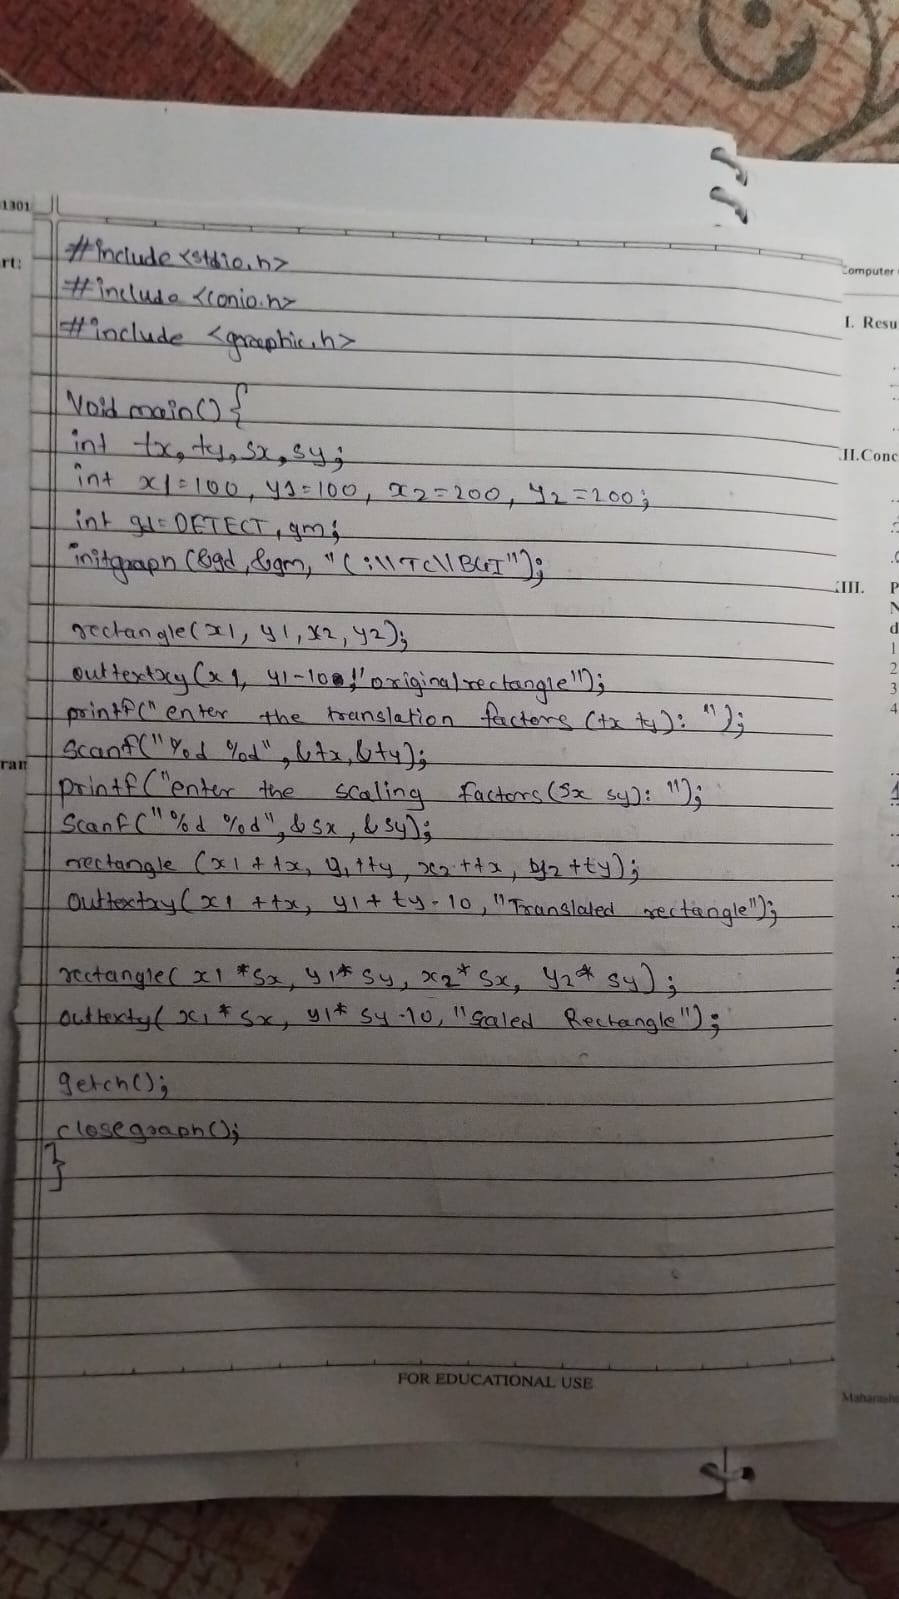 1301
rt:
ran
#include <stdio.h>
#include <conio.h>
#include <graphic.h>
Void main() {
int tx, ty, sx, sy;
int x1=100, y1=100, x2=200, y2=200;
int gd=DETECT, gm;
initgraph (&gd, &gm, "C:\\TC\\BGI");
rectangle(x1, y1, x2, y2);
outtextxy(x1, y1-10, "original rectangle");
printf("enter the translation factors (tx ty): ");
scanf("%d %d", &tx, &ty);
printf("enter the scaling factors (sx sy): ");
Scanf("%d %d", &sx, &sy);
rectangle (x1 + tx, y1+ty, x2+tx, y2+ty);
outtextxy(x1 +tx, y1+ ty-10, "Translated rectangle");
rectangle( x1 *sx, y1* sy, x2* sx, y2* sy);
outtexty( x1* sx, y1* sy-10, "Scaled Rectangle");
getch();
closegraph();
}
FOR EDUCATIONAL USE
Computer
I. Resu
II.Conc
III. P
N
d
1
2
3
4
Maharash